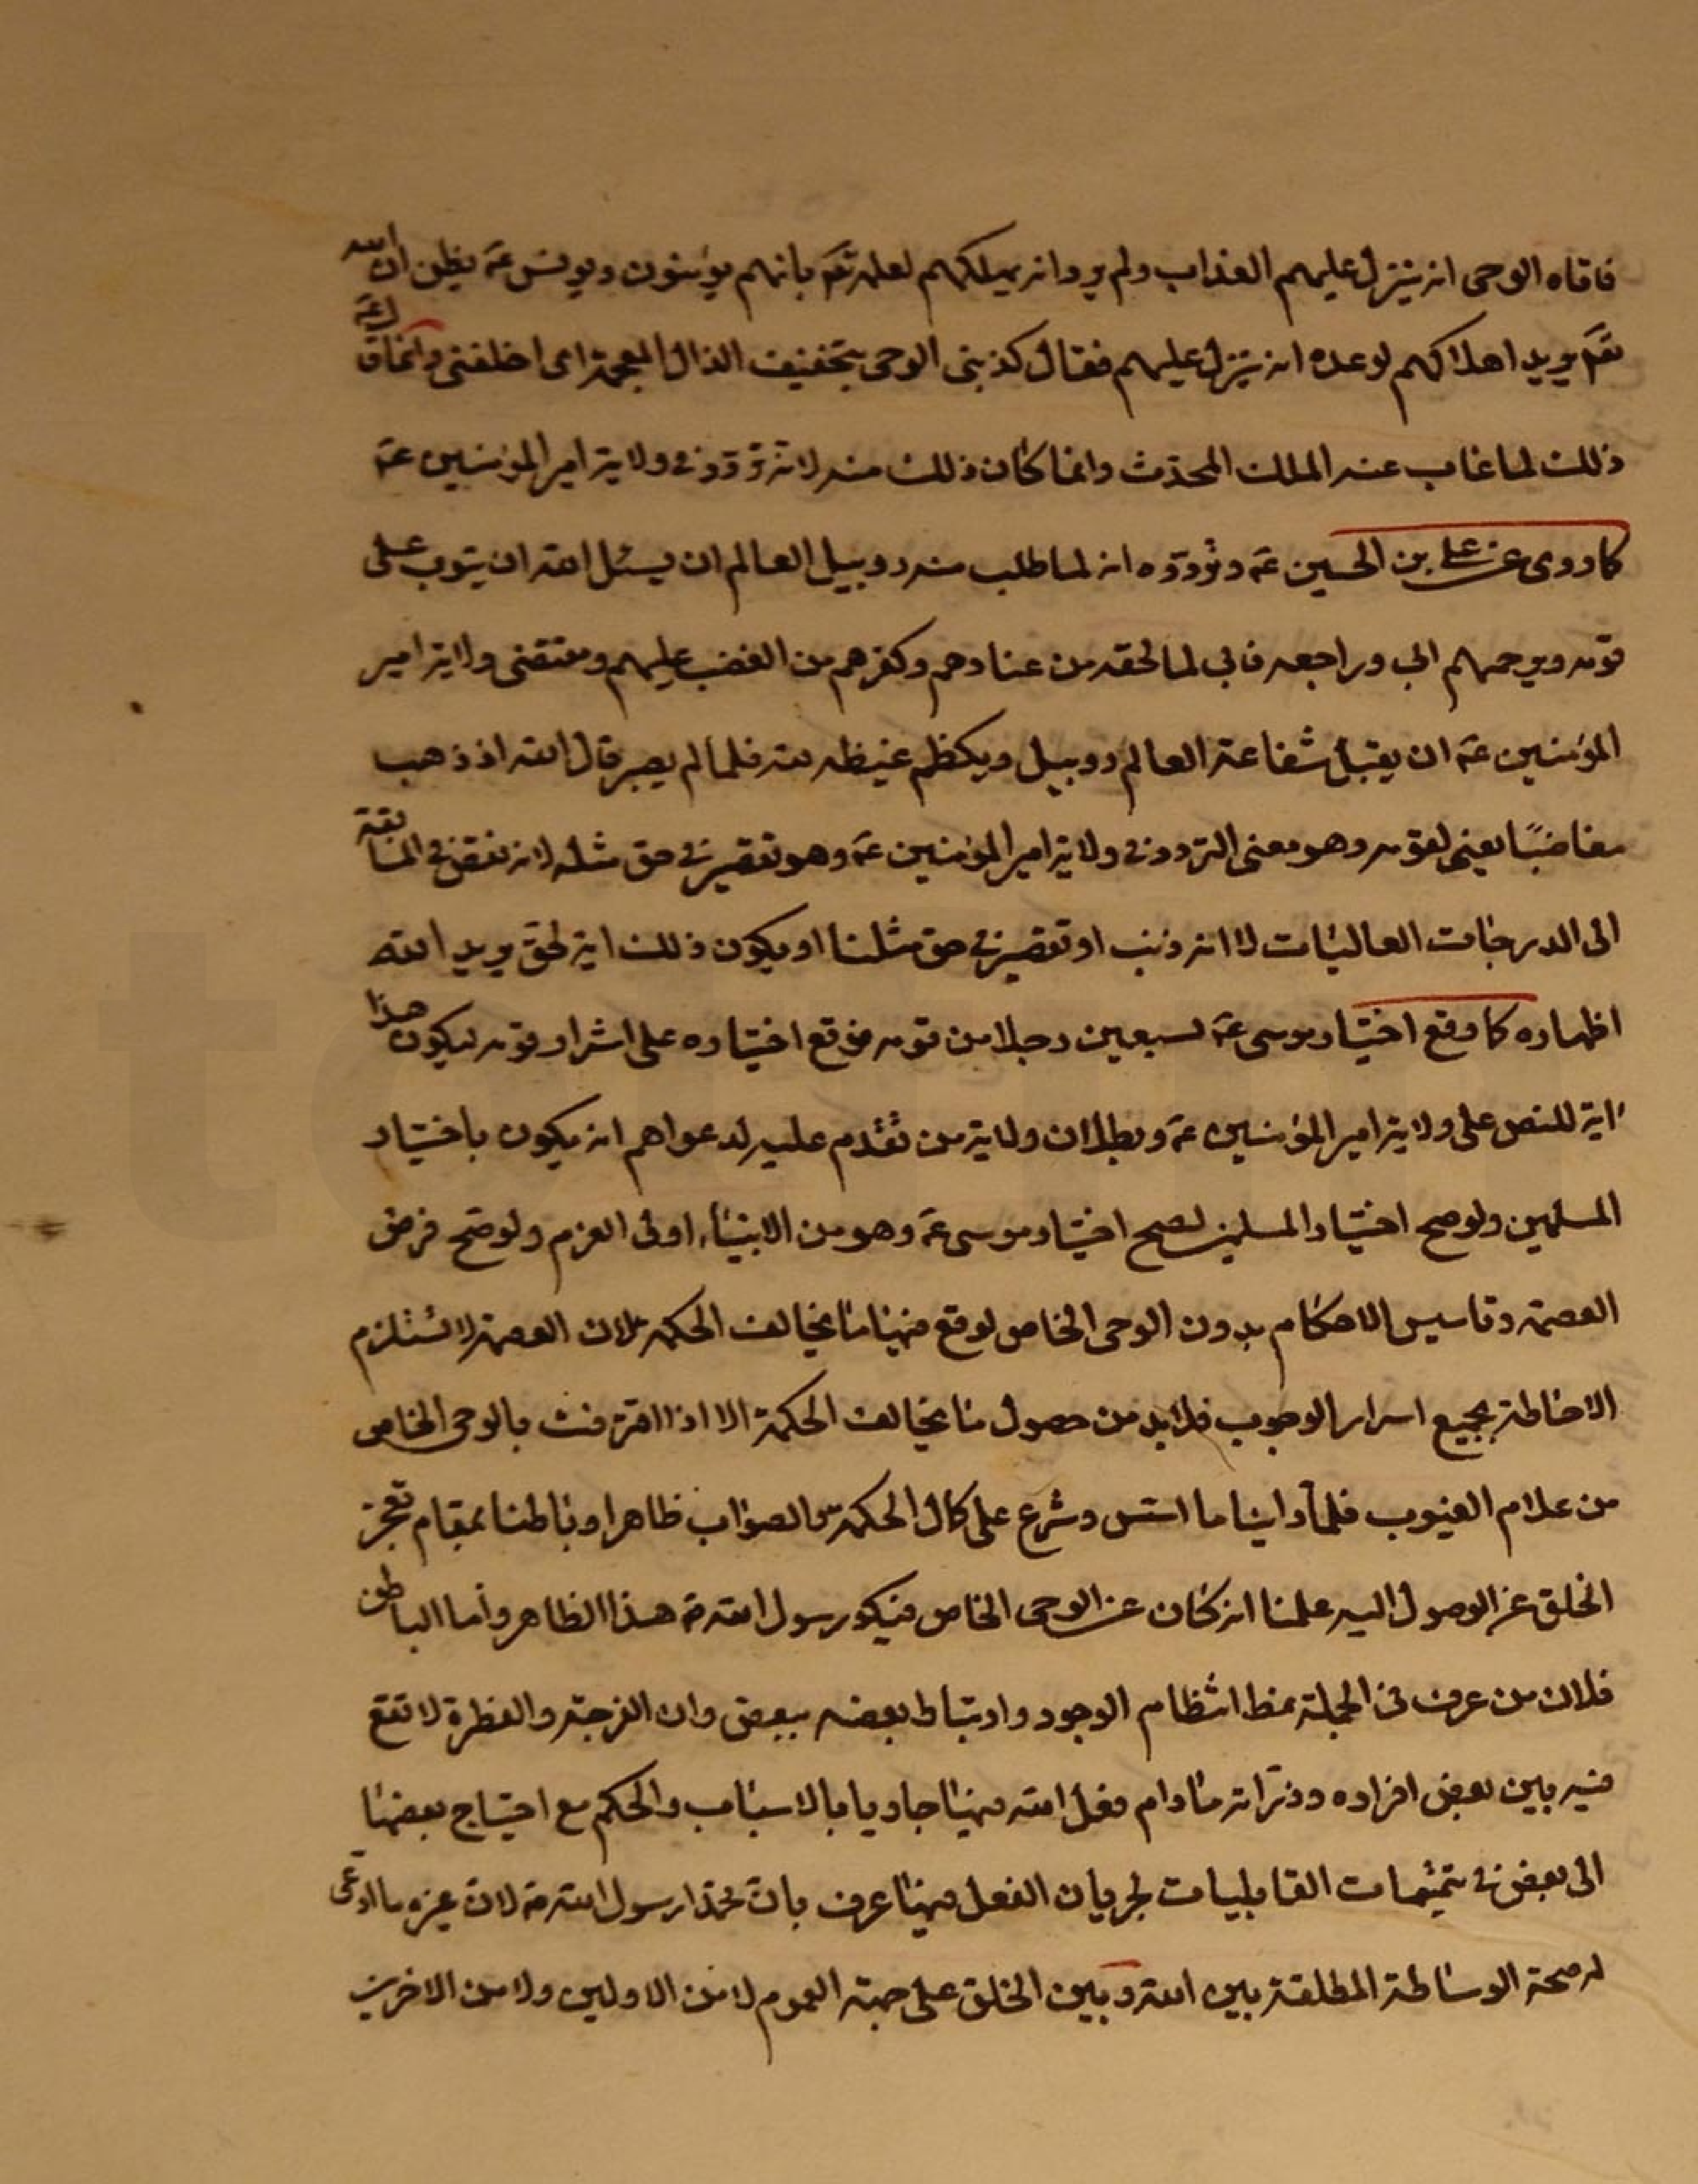 فاتاه الوحى انه ينزل عليهم العذاب ولم يرد انه يهلكهم لعلمه تعَ بانهم يؤمنون ويونس عَ يظن ان الله
تعَ يريد اهلاكهم لوعده انه ينزل عليهم فقال كذبنى الوحى بتخفيف الذال المعجمة اى اخلفنى وانما قال عَ
ذلك لما غاب عنه الملك المحدّث وانما كان ذلك منه لانه تردّد فى ولاية امير المؤمنين عَ
كما روى عن على بن الحسين عَ وتردّده انه لما طلب منه روبيل العالم ان يسئل الله ان يتوب على
قومه ويرحمهم ابى وراجعه فابى لما لحقه من عنادهم وكفرهم من الغضب عليهم ومقتضى ولاية امير
المؤمنين عَ ان يقبل شفاعة العالم روبيل ويكظم غيظه لله فلما لم يصبر قال الله اذ ذهب
مغاضبًا يعنى لقومه وهو معنى التردد فى ولاية امير المؤمنين عَ وهو تقصير فى حق مثله لانه نقص فى المسابقة
الى الدرجات العاليات لا انه ذنب او تقصير فى حق مثلنا او يكون ذلك اية لحق يريد الله
اظهاره كما وقع اختيار موسى عَ لسبعين رجلا من قومه فوقع اختياره على اشرار قومه ليكون هذا
اية للنص على ولاية امير المؤمنين عَ وبطلان ولاية من تقدم عليه لدعواهم انه يكون باختيار
المسلمين ولو صح اختيار المسلمين لصح اختيار موسى عَ وهو من الانبياء اولى العزم ولو صح فرض
العصمة وتاسيس الاحكام بدون الوحى الخاص لوقع فيها ما يخالف الحكمة لان العصمة لا تستلزم
الاحاطة بجميع اسرار الوجوب فلا بد من حصول ما يخالف الحكمة الا اذا اقترنت بالوحى الخاص
من علام الغيوب فلما راينا ما اسّس وشرع على كمال الحكمة والصواب ظاهرا وباطنا بمقام تعجز
الخلق عن الوصول اليه علمنا انه كان عن الوحى الخاص فيكون رسول الله صَ هذا الظاهر وأما الباطن
فلان من عرف فى الجملة نمط انتظام الوجود وارتباط بعضه ببعض وان الفرجة والفطرة لا تقع
فيه بين بعض افراده وذرّاته ما دام فعل الله فيها جاريا بالاسباب والحكم مع احتياج بعضها
الى بعض فى تتميمات القابليات لجريان الفعل فيها عرف بانّ محمّدا رسول الله صَ لان غيره ما ادعى
له صحة الوساطة المطلقة بين الله وبين الخلق على جهة العموم لا من الاولين ولا من الاخرين